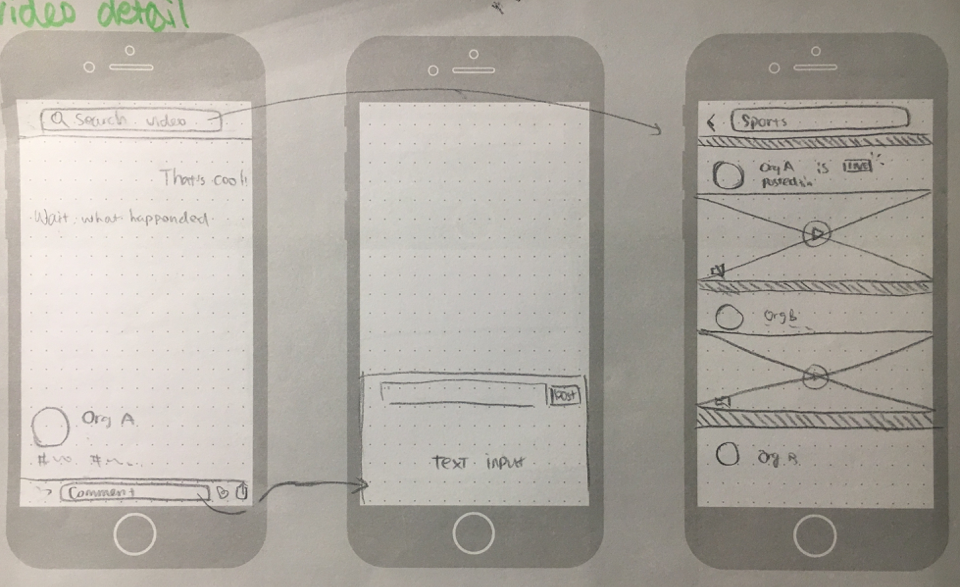 video detail
Search video
That's cool!
Wait what happonded
Org A
Comment
Post
TEXT INPUT
Sports
Org A is LIVE
Posted in
Org B